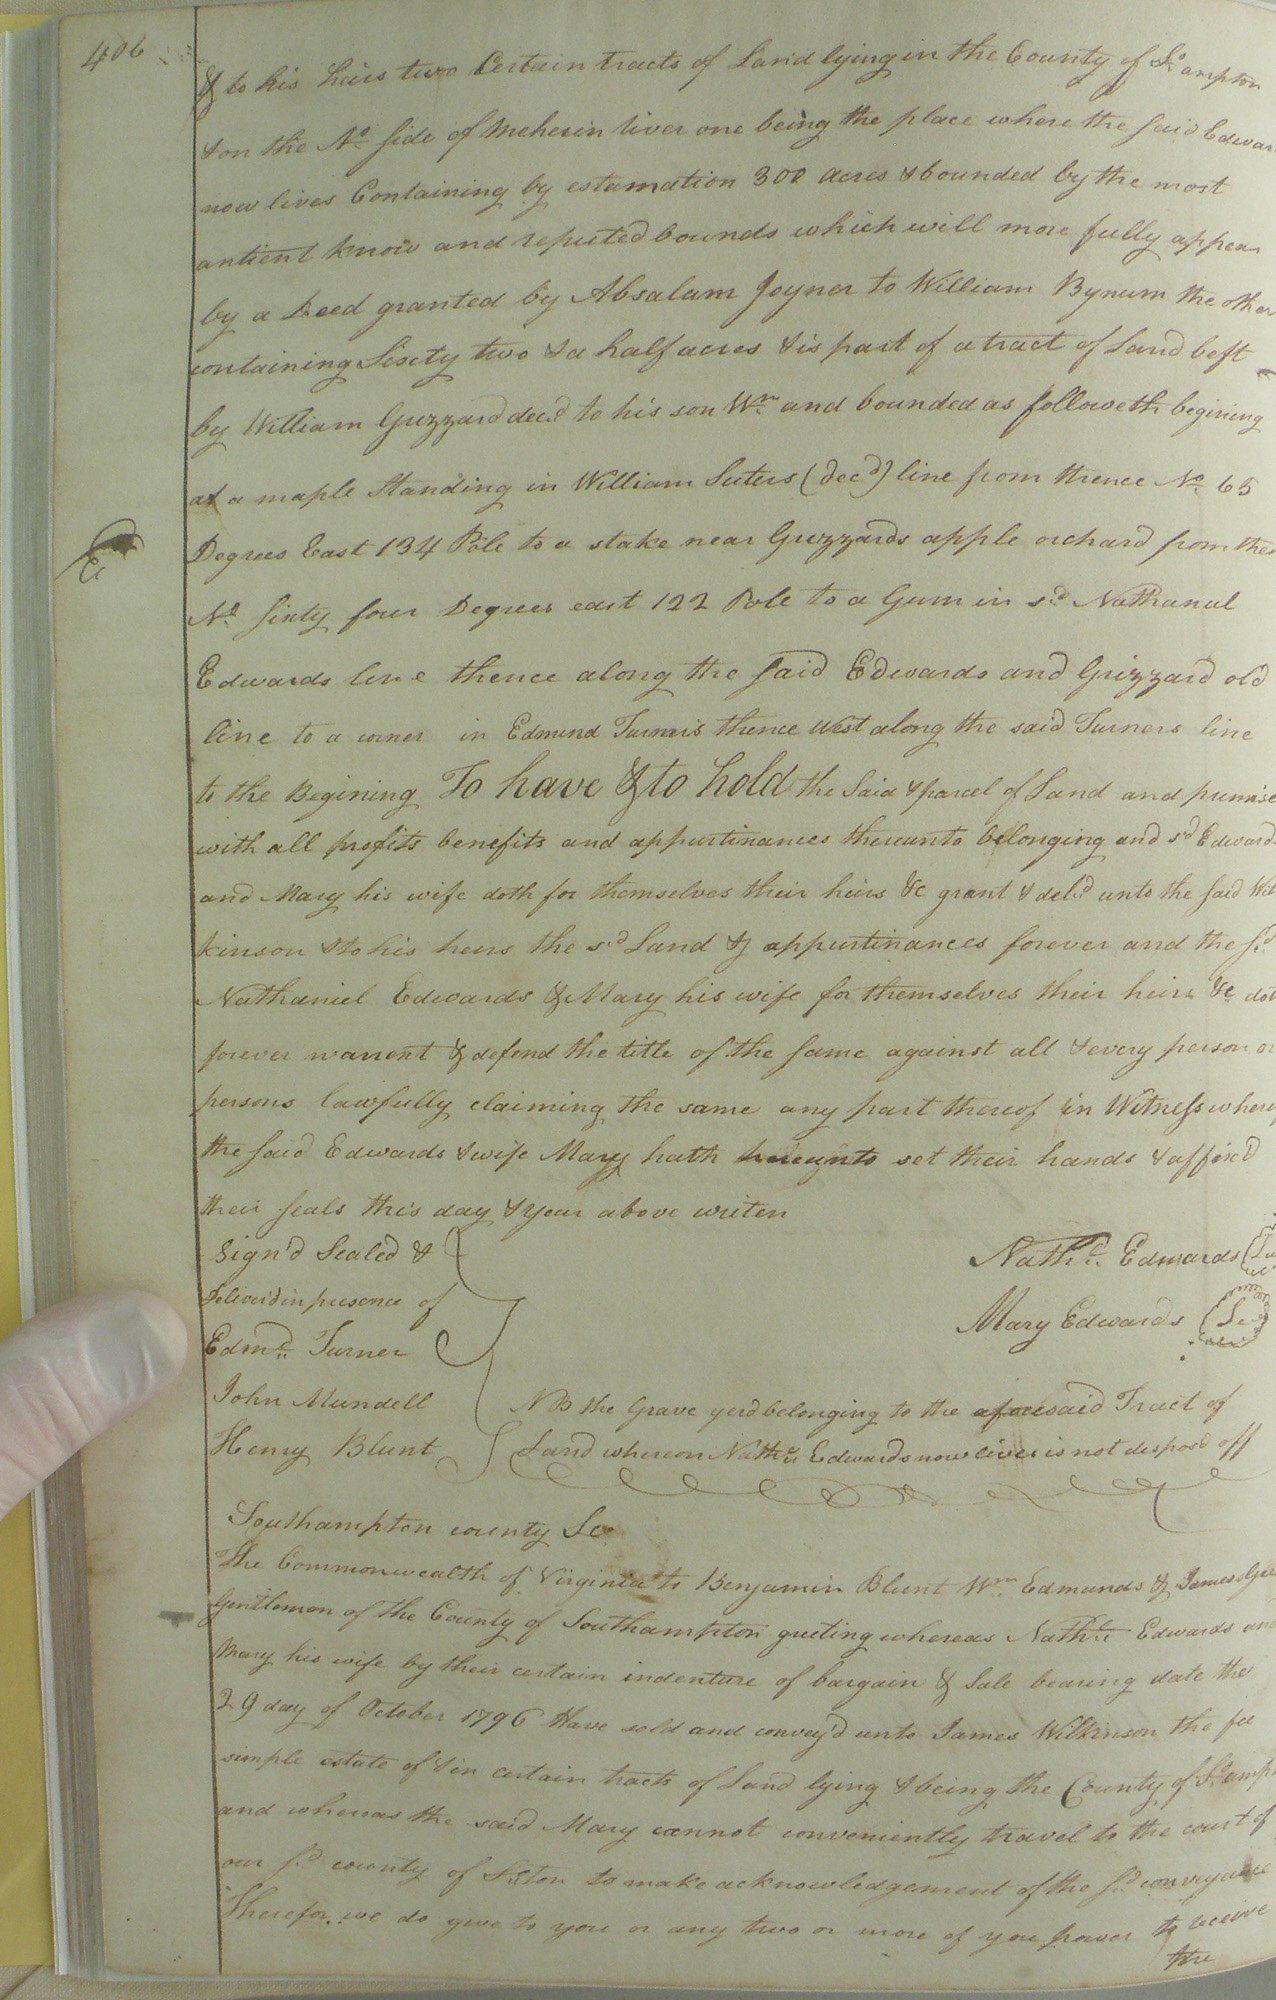 406
& to his heirs two Certain tracts of Land lying in the County of So ampton
& on the No side of Meherin river one being the place where the said Edwar
now lives Containing by estamation 300 acres & bounded by the most
antient know and reputed bounds which will more fully appear
by a Deed granted by Absalam Joyner to William Bynum the other
containing Sixty two & a half acres & is part of a tract of Land left
by William Grizzard decd to his son Wm and bounded as followeth begining
at a maple Standing in William Suters (decd) line from thence No 65
Degrees East 134 Pole to a stake near Grizzards apple orchard from then
No Sixty four Degrees east 122 Pole to a Gum in sd Nathanul
Edwards line thence along the said Edwards and Grizzard old
line to a corner in Edmund Turners thence West along the said Turners line
to the Begining To have & to hold the Said & parcel of Land and premise
with all profits benefits and appurtinances thereunto belonging and sd Edwards
and Mary his wife doth for themselves their heirs &c grant & deld unto the said Wil
kinson & to his heirs the sd Land & appurtinances forever and the sd
Nathaniel Edwards & Mary his wife for themselves their heirs &c dot
forever warrent & defend the title of the same against all & every person or
persons lawfully claiming the same any part thereof in Witness where
the said Edwards & wife Mary hath hereunto set their hands & affix'd
their seals this day & year above writen
Sign'd Sealed &
Deliver'd in presence of
Edmd Turner
John Mundell
Henry Blunt
Nathl Edwards
Mary Edwards
NB the Grave yerd belonging to the aforesaid Tract of
Land whereon Nathl Edwards now lives is not dispos'd off
Southampton county Sc
The Commonwealth of Virginia to Benjamin Blunt Wm Edmunds & James
Gentlemen of the County of Southampton greeting whereas Nathl Edwards and
Mary his wife by their certain indenture of bargain & Sale bearing date the
29 day of October 1796 Have sold and convey'd unto James Wilkinson the fee
simple estate of & in certain tracts of Land lying & being the County of So amp
and whereas the said Mary cannot conveniently travel to the court of
our sd county of to make acknowledgement of the sd conveyance
Therefor we do give to you or any two or more of you power to receive
the